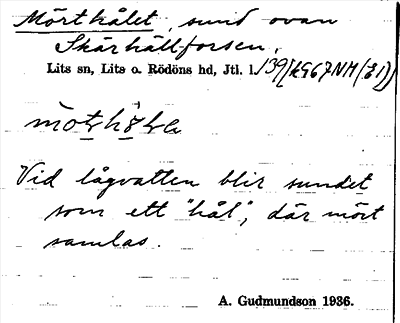 Mörthålet, sund ovan
Skärhällforsen,
Lits sn, Lits o. Rödöns hd, Jtl. l.
Vid lågvatten blir sundet
som ett "hål", där mört
samlas.
A. Gudmundson 1936.